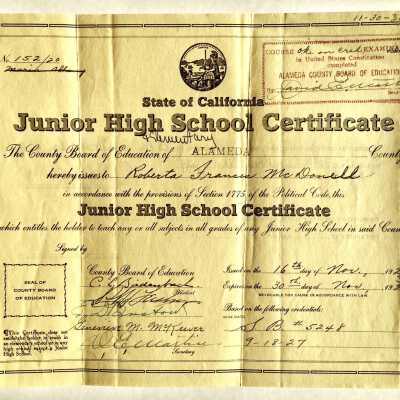 11-30-
No. 152/20
COURSE ok on cred EXAMINA
in United States Constitution
completed
ALAMEDA COUNTY BOARD OF EDUCATION
By
State of California
Junior High School Certificate
Elementary
The County Board of Education of ALAMEDA County
hereby issues to Roberta Frances McDonell
in accordance with the provisions of Section 1775 of the Political Code, this
Junior High School Certificate
which entitles the holder to teach any or all subjects in all grades of any Junior High School in said Coun
Signed by
County Board of Education
President
Secretary
SEAL OF
COUNTY BOARD
OF EDUCATION
This Certificate does not
High School.
Issued on the 16th day of Nov., 192
Expires on the 30th day of Nov., 192
REVOCABLE FOR CAUSE IN ACCORDANCE WITH LAW
Based on the following credentials:
S B # 5248
9-18-27